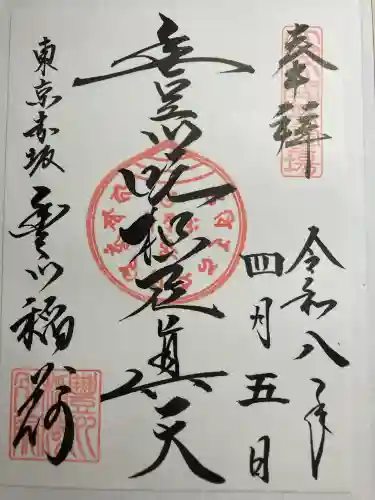 奉拝
令和八年
四月五日
豊川吒枳尼真天
東京赤坂
豊川稲荷